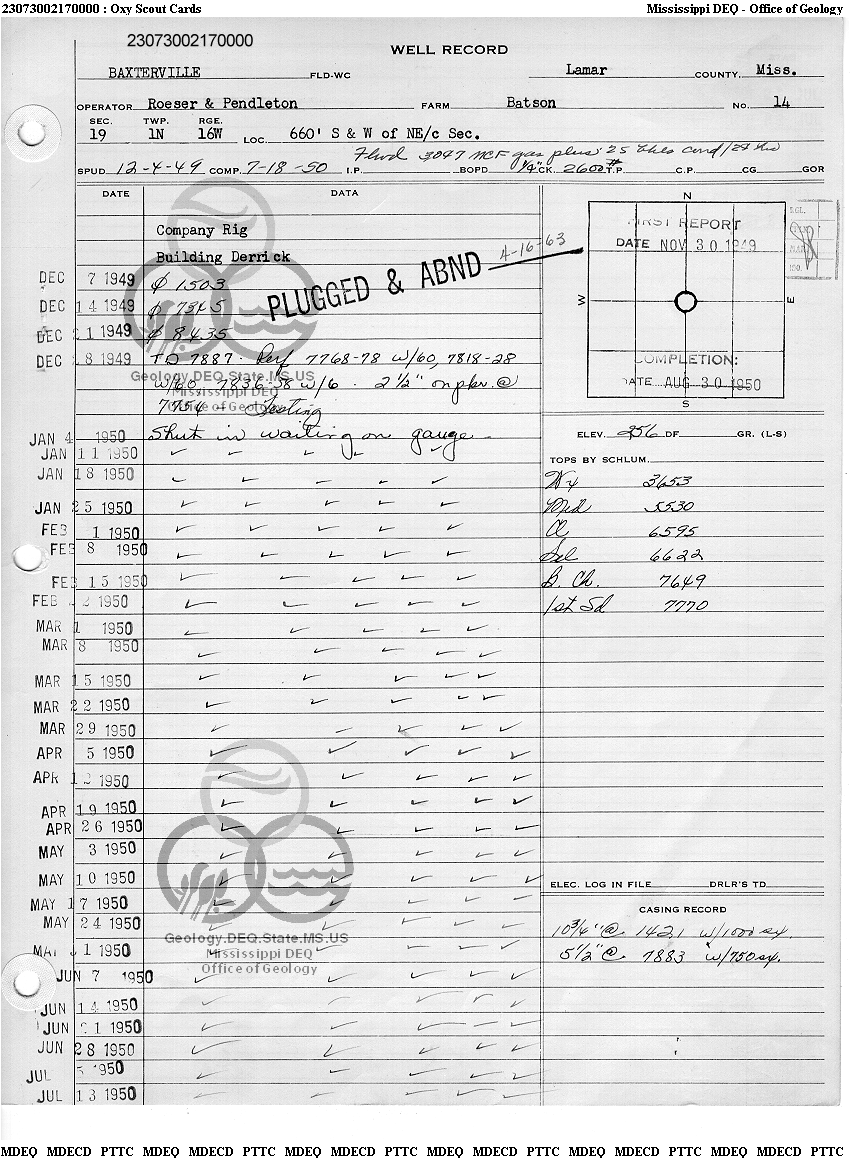 23073002170000 : Oxy Scout Cards Mississippi DEQ - Office of Geology
23073002170000
WELL RECORD
BAXTERVILLE FLD-WC Lamar COUNTY, Miss.
OPERATOR Roeser & Pendleton FARM Batson NO. 14
SEC. TWP. RGE.
19 1N 16W LOC. 660' S & W of NE/c Sec.
Flwd 3097 MCF gas plus 25 bbls cond/24 hrs
SPUD 12-4-49 COMP. 7-18-50 I.P. BOPD 1/4" CK. 2600# T.P. C.P. CG GOR
DATE DATA
Company Rig
Building Derrick
DEC 7 1949 1503
PLUGGED & ABND 4-16-63
DEC 14 1949 7345
DEC 21 1949 8435
DEC 28 1949 TD 7887. Perf 7768-78 w/60, 7818-28
w/60, 7836-38 w/6. 2 1/2" on pkr. @
7754 - Testing
Geology.DEQ.State.MS.US
Mississippi DEQ
Office of Geology
JAN 4 1950 Shut in waiting on gauge
JAN 11 1950
JAN 18 1950
JAN 25 1950
FEB 1 1950
FEB 8 1950
FEB 15 1950
FEB 22 1950
MAR 1 1950
MAR 8 1950
MAR 15 1950
MAR 22 1950
MAR 29 1950
APR 5 1950
APR 12 1950
APR 19 1950
APR 26 1950
MAY 3 1950
MAY 10 1950
MAY 17 1950
MAY 24 1950
MAY 31 1950
JUN 7 1950
JUN 14 1950
JUN 21 1950
JUN 28 1950
JUL 5 1950
JUL 13 1950
Geology.DEQ.State.MS.US
Mississippi DEQ
Office of Geology
N
W
E
S
FIRST REPORT
DATE NOV 30 1949
COMPLETION:
DATE AUG 30 1950
ELEV. 256 DF GR. (L-S)
TOPS BY SCHLUM.
Wx 3653
Mid 5530
Cl 6595
Sel 6622
B. Ch. 7649
1st Sd 7770
ELEC. LOG IN FILE DRLR'S TD
CASING RECORD
10 3/4" @ 1421 w/1000 sx.
5 1/2" @ 7883 w/750 sx.
MDEQ MDECD PTTC MDEQ MDECD PTTC MDEQ MDECD PTTC MDEQ MDECD PTTC MDEQ MDECD PTTC MDEQ MDECD PTTC